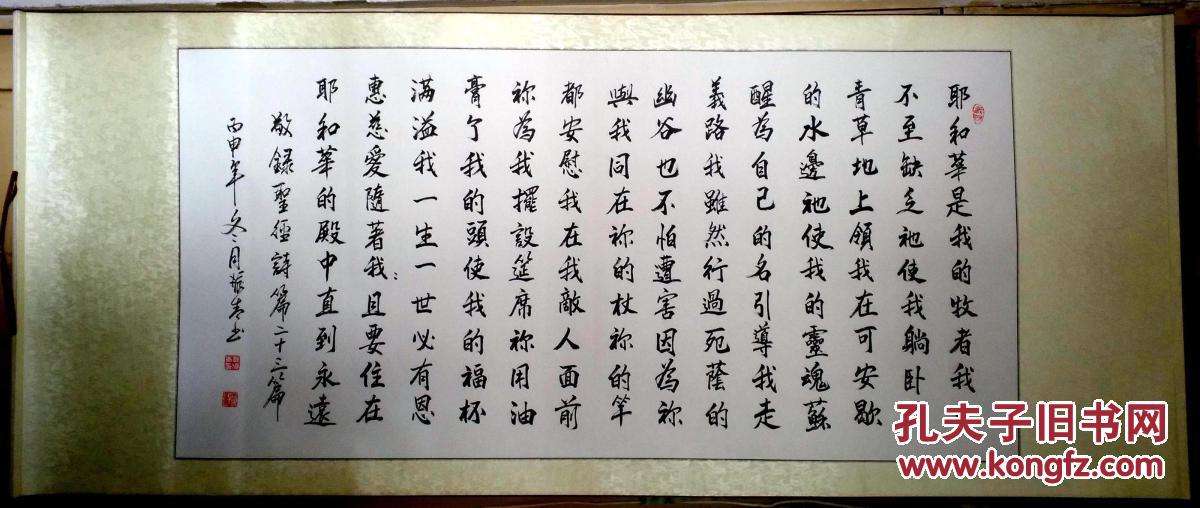 耶和華是我的牧者我
不至缺乏祂使我躺卧
青草地上領我在可安歇
的水邊祂使我的靈魂蘇
醒為自己的名引導我走
義路我雖然行過死蔭的
幽谷也不怕遭害因為祢
與我同在祢的杖祢的竿
都安慰我在我敵人面前
祢為我擺設筵席祢用油
膏了我的頭使我的福杯
滿溢我一生一世必有恩
惠慈愛隨著我且要住在
耶和華的殿中直到永遠
敬錄聖經詩篇二十三篇
丙申年冬月振 書
孔夫子旧书网
www.kongfz.com